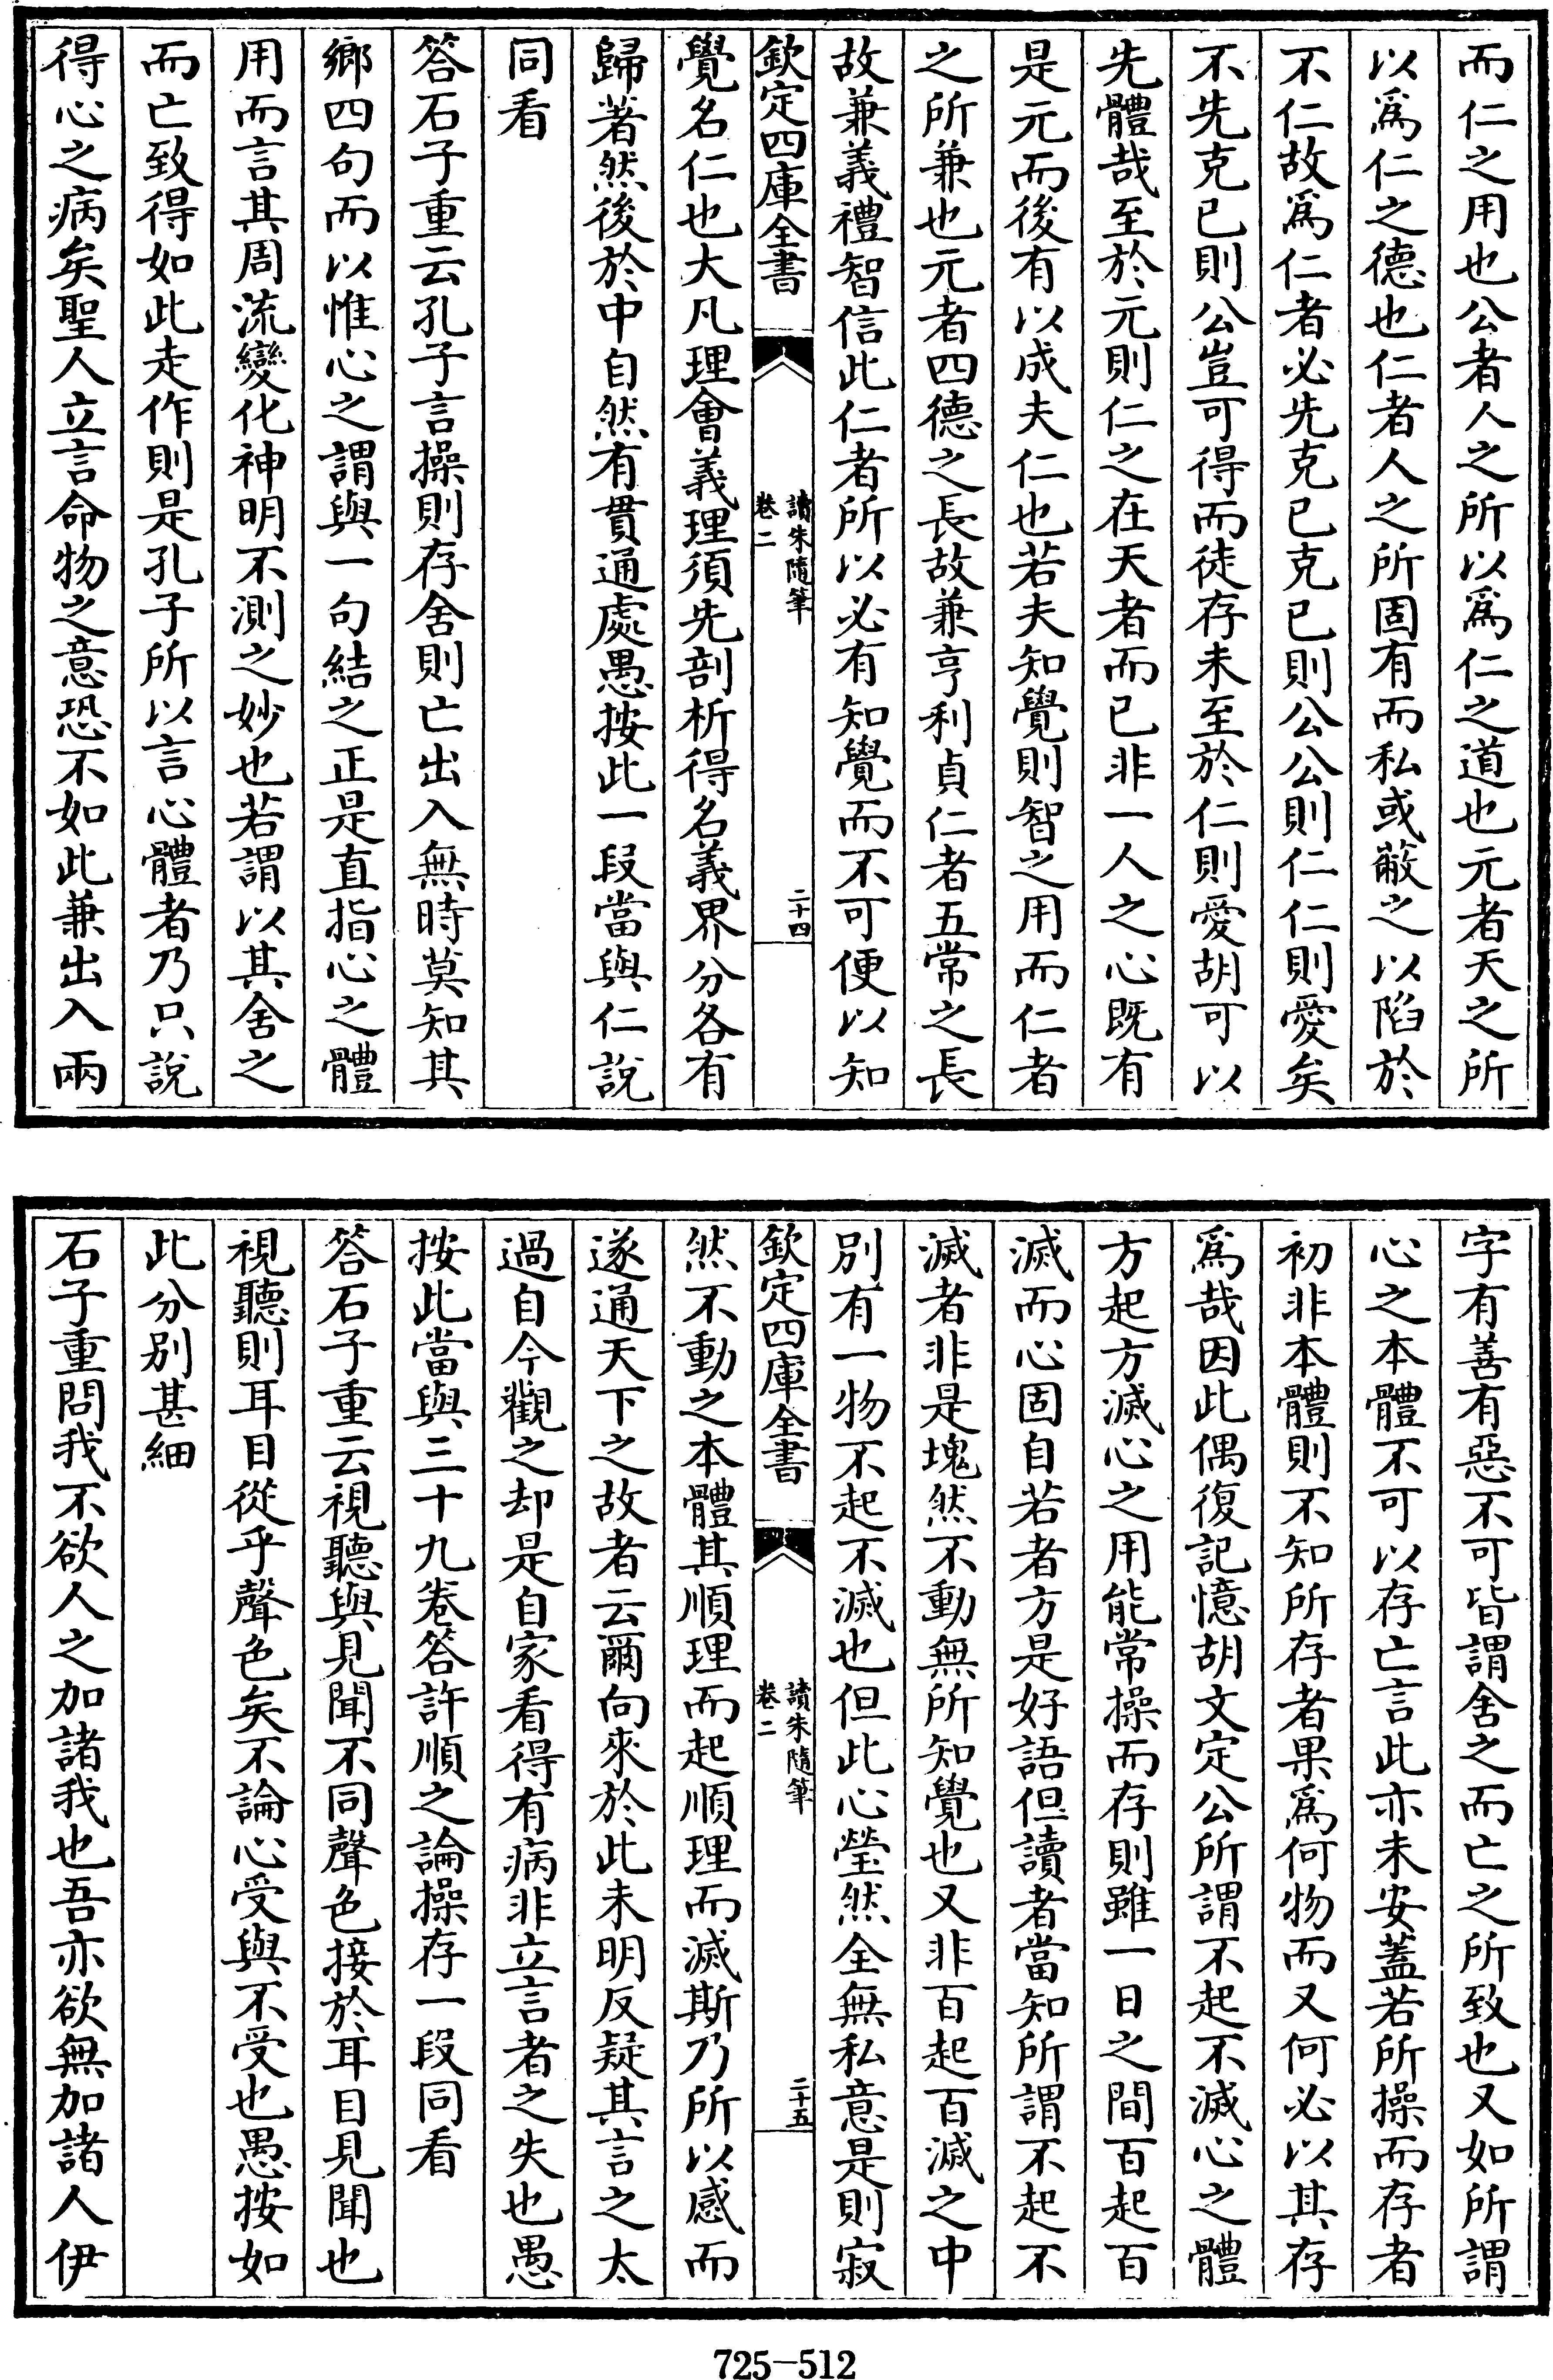 而仁之用也公者人之所以爲仁之道也元者天之所
以爲仁之德也仁者人之所固有而私或蔽之以陷於
不仁故爲仁者必先克已克已則公公則仁仁則愛矣
不先克已則公豈可得而徒存未至於仁則愛胡可以
先體哉至於元則仁之在天者而已非一人之心既有
是元而後有以成夫仁也若夫知覺則智之用而仁者
之所兼也元者四德之長故兼亨利貞仁者五常之長
故兼義禮智信此仁者所以必有知覺而不可便以知
欽定四庫全書
讀朱隨筆
卷二
二十四
覺名仁也大凡理會義理須先剖析得名義界分各有
歸著然後於中自然有貫通處愚按此一段當與仁說
同看
答石子重云孔子言操則存舍則亡出入無時莫知其
鄉四句而以惟心之謂與一句結之正是直指心之體
用而言其周流變化神明不測之妙也若謂以其舍之
而亡致得如此走作則是孔子所以言心體者乃只說
得心之病矣聖人立言命物之意恐不如此兼出入兩
字有善有惡不可皆謂舍之而亡之所致也又如所謂
心之本體不可以存亡言此亦未安蓋若所操而存者
初非本體則不知所存者果爲何物而又何必以其存
爲哉因此偶復記憶胡文定公所謂不起不滅心之體
方起方滅心之用能常操而存則雖一日之間百起百
滅而心固自若者方是好語但讀者當知所謂不起不
滅者非是塊然不動無所知覺也又非百起百滅之中
別有一物不起不滅也但此心瑩然全無私意是則寂
欽定四庫全書
讀朱隨筆
卷二
二十五
然不動之本體其順理而起順理而滅斯乃所以感而
遂通天下之故者云爾向來於此未明反疑其言之太
過自今觀之却是自家看得有病非立言者之失也愚
按此當與三十九卷答許順之論操存一段同看
答石子重云視聽與見聞不同聲色接於耳目見聞也
視聽則耳目從乎聲色矣不論心受與不受也愚按如
此分別甚細
石子重問我不欲人之加諸我也吾亦欲無加諸人伊
725-512